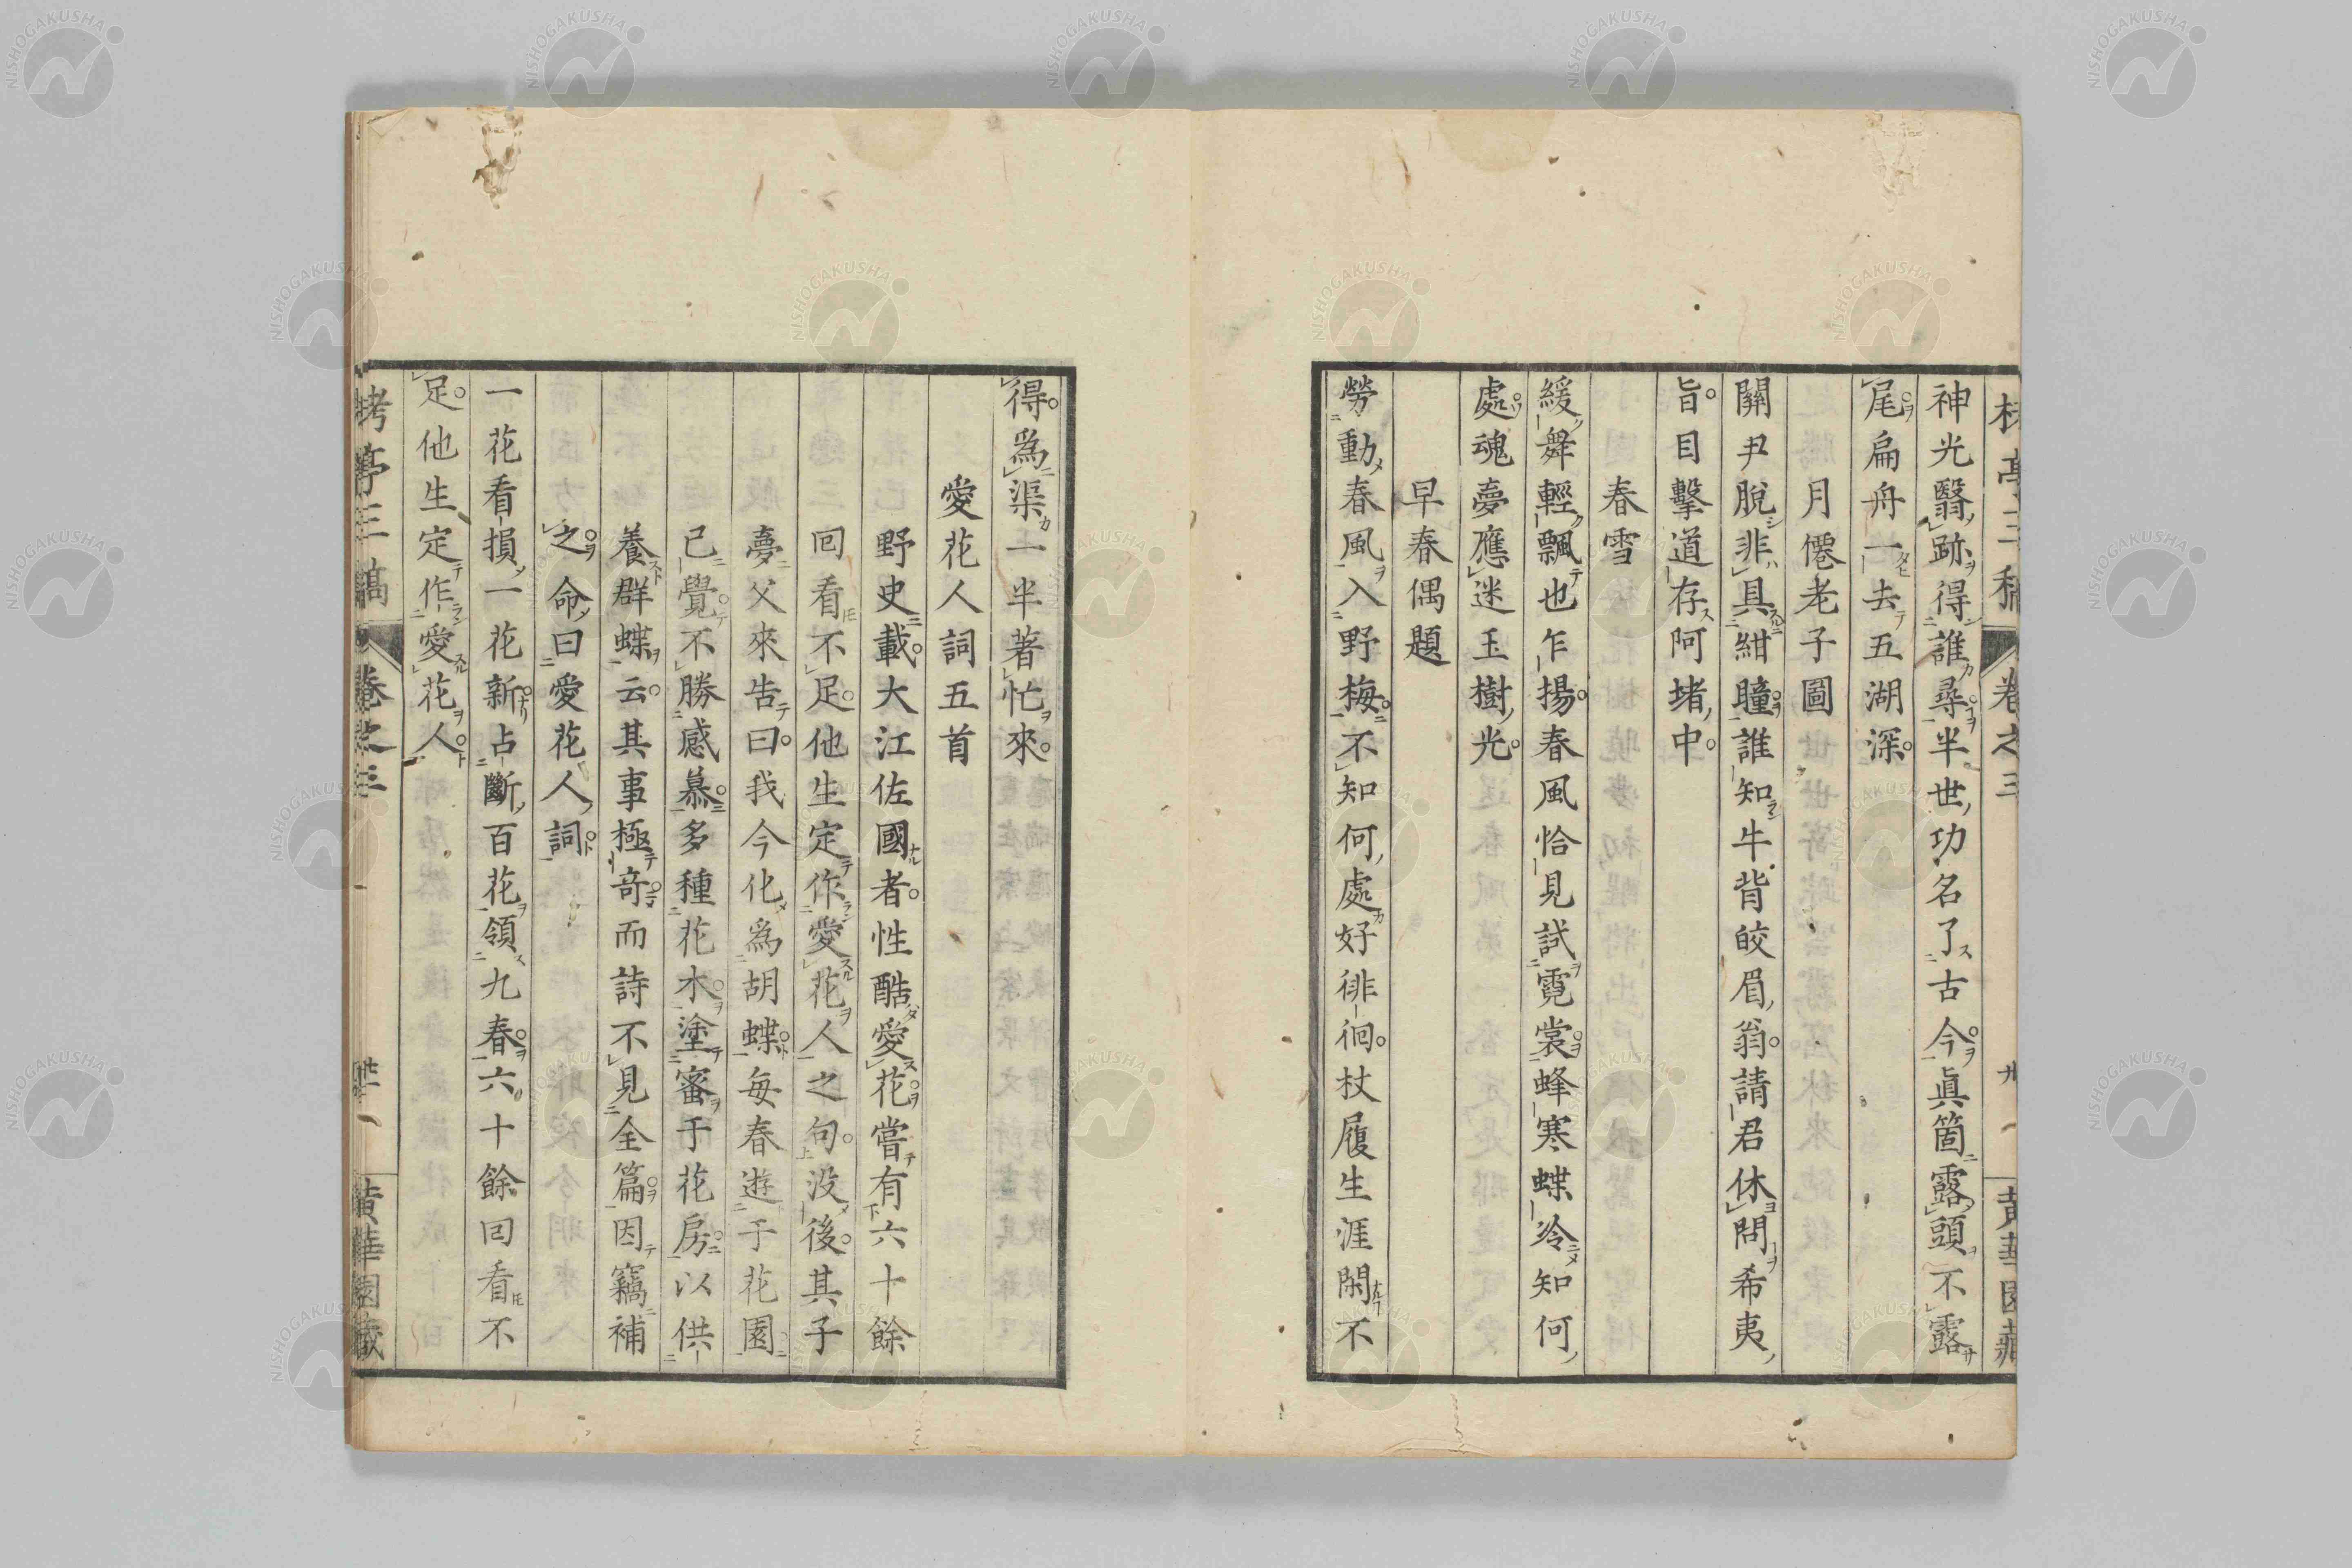 神光翳跡得誰尋半世功名了古今眞箇露頭不露
尾扁舟一去五湖深
月僊老子圖
關尹脫非具紺瞳誰知牛背皎眉翁請君休問希夷
旨目擊道存阿堵中
春雪
緩舞輕飄也乍揚春風恰見試霓裳蜂寒蝶冷知何
處魂夢應迷玉樹光
早春偶題
勞動春風入野梅不知何處好徘徊杖履生涯閑不
得爲渠一半著忙來
愛花人詞五首
野史載大江佐國者性酷愛花嘗有六十餘
回看不足他生定作愛花人之句没後其子
夢父來告曰我今化爲胡蝶毎春遊于花園
已覺不勝感慕多種花木塗蜜于花房以供
養群蝶云其事極奇而詩不見全篇因竊補
之命曰愛花人詞
一花看損一花新占斷百花領九春六十餘回看不
足他生定作愛花人
栲亭三稿 卷之三 黄華園藏
NISHOGAKUSHA